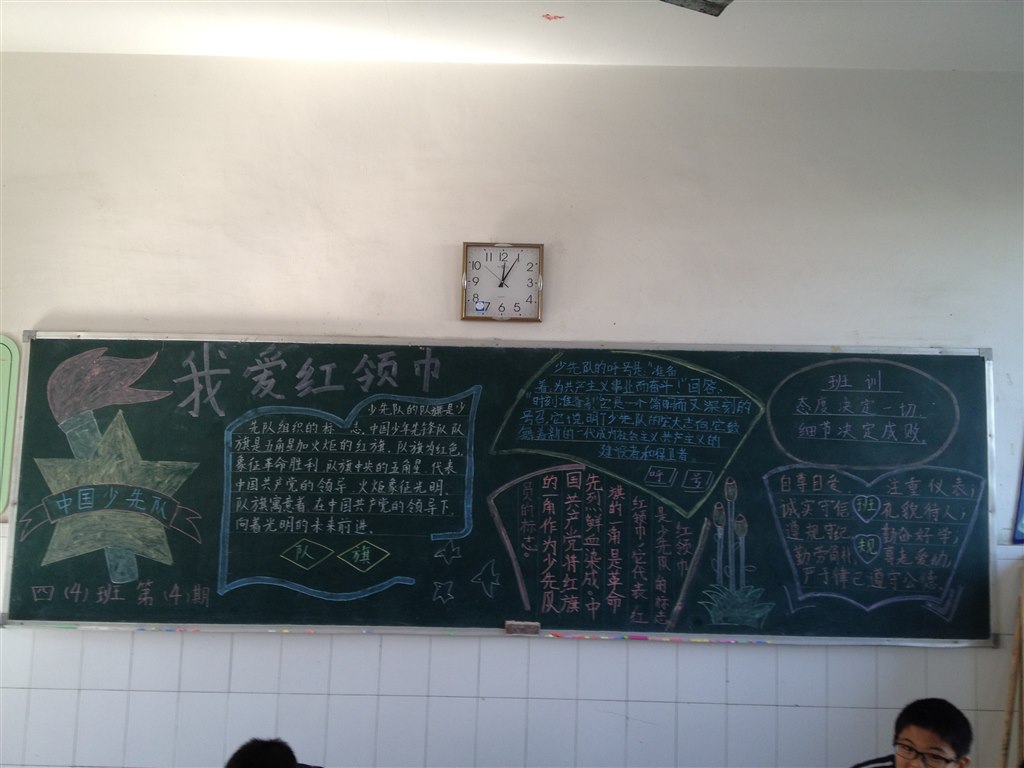 我爱红领巾
中国少先队
四(4)班 第(4)期
少先队的队旗是少
先队组织的标志.中国少年先锋队队
旗是五角星加火炬的红旗.队旗为红色.
象征革命胜利.队旗中央的五角星.代表
中国共产党的领导.火炬象征光明.
队旗寓意着.在中国共产党的领导下.
向着光明的未来前进.
队 旗
少先队的呼号是."准备
着.为共产主义事业而奋斗!"回答.
"时刻准备着!"它是一个简明而又深刻的
号召.它说明了少先队
社会主义共产主义的
建设者和保卫者.
呼 号
红领巾.
是少先队员的标志
红领巾.它代表红
旗的一角是革命
先烈鲜血染成.中
国共产党将红旗
的一角作为少先队
员的标志.
班 训
态度决定一切
细节决定成败.
班规
自尊自爱 注重仪表;
诚实守信 礼貌待人;
遵规守纪 勤奋好学;
勤劳简朴 孝老爱幼;
严于律己 遵守公德.
12
1
2
3
4
5
6
7
8
9
10
11